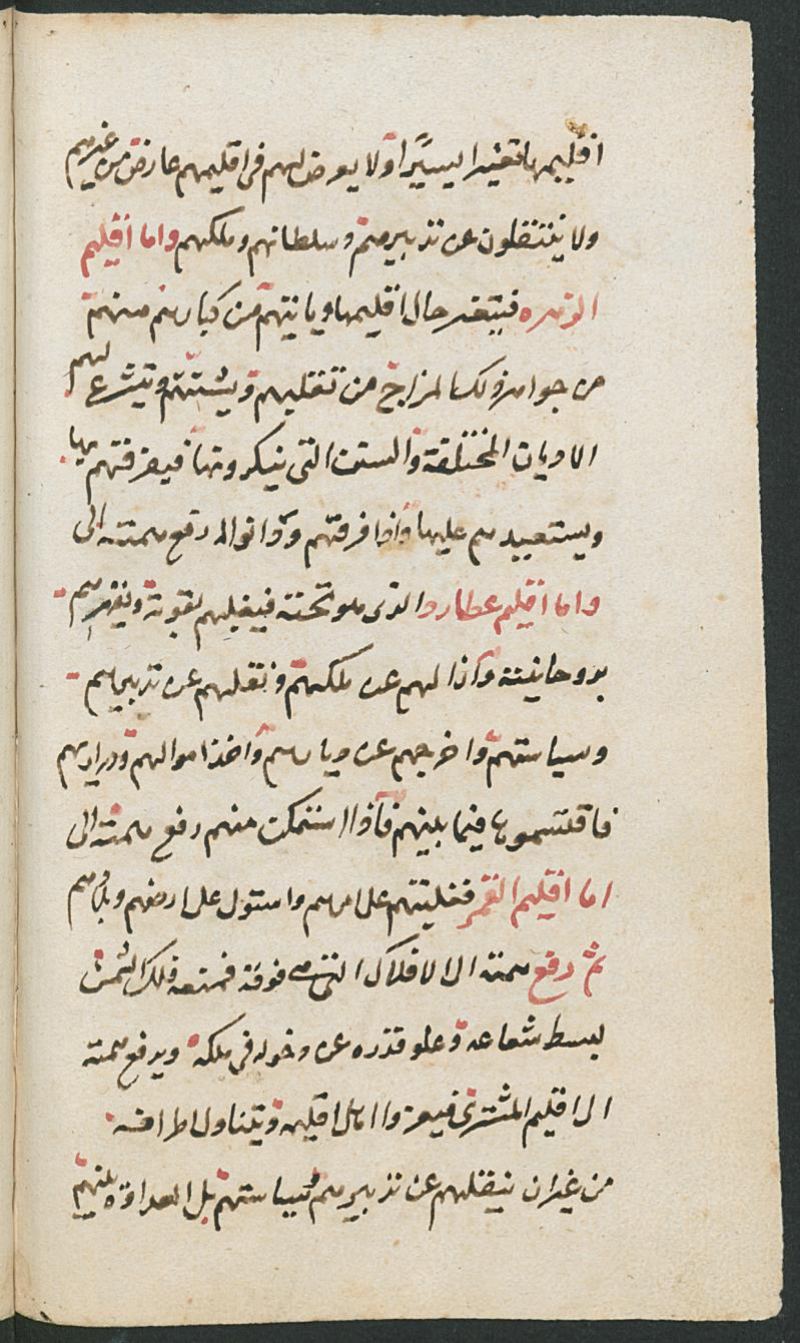 اقليمها تغيرا يسيرا ولا يعرض لهم في اقليمهم عارض من غيرهم
ولا ينتقلون عن تدبيرهم وسلطانهم وملكهم واما اقليم
الزهره فيتغير حال اقليمها وياتيهم من كبارهم منهم
من جوا المزاج من تنقليهم ويشتتهم ويشرع لهم
الاديان المختلفة والسنن التي ينكرونها فيفرقتهم بها
ويستعبيدهم عليها واذا فرقتهم وكوانواله رفع همته الى
واما اقليم عطارد الذي هو تحته فيغلبهم بقوته ويقهرهم
بروحانيته واذا لهم عن ملكهم ونقلهم عن تدبيرهم
وسياستهم واخرجهم عن ديارهم واخذ اموالهم وذراريهم
فاقتسموها فيما بينهم فاذا استمكن منهم رفع همته الى
اما اقليم القمر فغلبتهم على امرهم واستول على ارضهم وبلادهم
ثم رفع همته الى الافلاك التي هي فوقه فمنعه فلك الشمس
ببسط شعاعه وعلو قدره عن دخوله في ملكه ويرفع همته
الى اقليم المشترى فيغزوا اهل اقليمه ويتناول اطرافه
من غير ان ينقلهم عن تدبيرهم وسياستهم بل العداوة بينهم